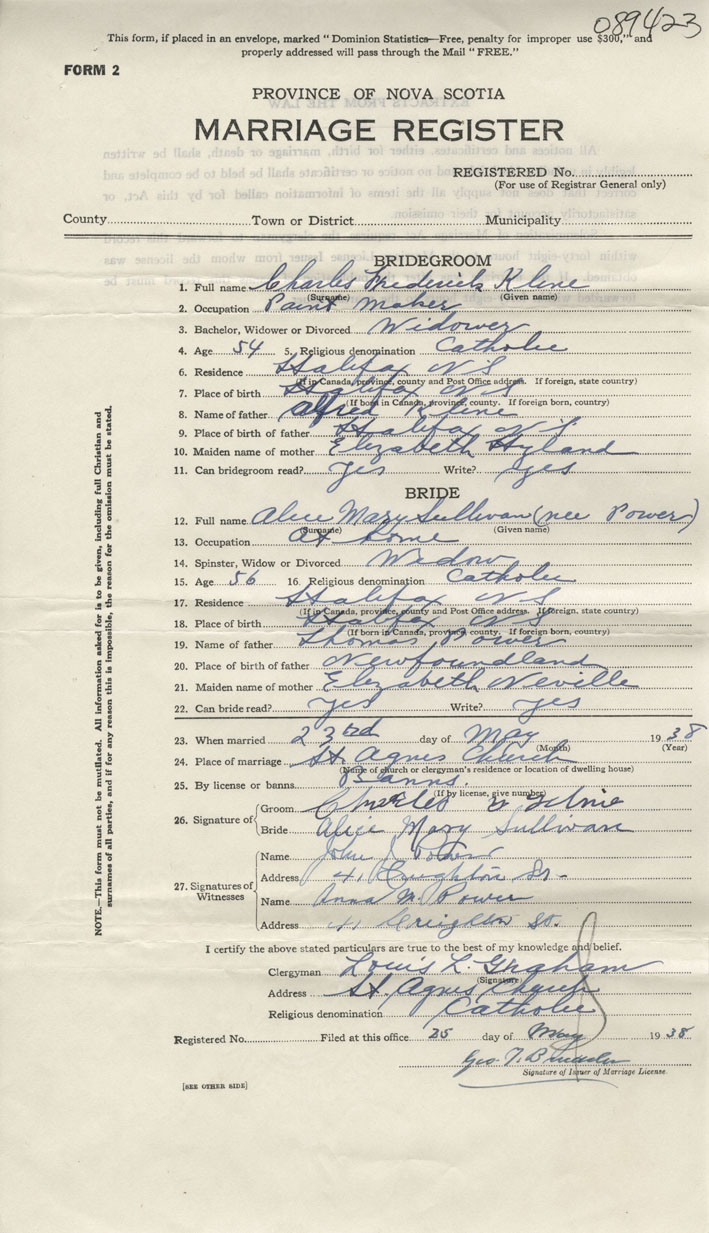 089423
This form, if placed in an envelope, marked "Dominion Statistics—Free, penalty for improper use $300," and
properly addressed will pass through the Mail "FREE."
FORM 2
PROVINCE OF NOVA SCOTIA
MARRIAGE REGISTER
REGISTERED No.
(For use of Registrar General only)
County Town or District Municipality
BRIDEGROOM
1. Full name Charles Frederick Kline
(Surname) (Given name)
2. Occupation Paint maker
3. Bachelor, Widower or Divorced Widower
4. Age 54 5. Religious denomination Catholic
6. Residence Halifax N S
(If in Canada, province, county and Post Office address. If foreign, state country)
7. Place of birth Halifax N S
(If born in Canada, province, county. If foreign born, country)
8. Name of father Alfred Kline
9. Place of birth of father Halifax N S
10. Maiden name of mother Elizabeth Hyland
11. Can bridegroom read? Yes Write? Yes
BRIDE
12. Full name Alice Mary Sullivan (nee Power)
(Surname) (Given name)
13. Occupation At home
14. Spinster, Widow or Divorced Widow
15. Age 56 16. Religious denomination Catholic
17. Residence Halifax N S
(If in Canada, province, county and Post Office address. If foreign, state country)
18. Place of birth Halifax N S
(If born in Canada, province, county. If foreign born, country)
19. Name of father Thomas Power
20. Place of birth of father Newfoundland
21. Maiden name of mother Elizabeth Neville
22. Can bride read? Yes Write? Yes
23. When married 23rd day of May 1938
(Month) (Year)
24. Place of marriage St. Agnes Church
(Name of church or clergyman's residence or location of dwelling house)
25. By license or banns Banns.
(If by license, give number)
26. Signature of Groom Charles
Bride Alice Mary Sullivan
27. Signatures of Witnesses
Name John J Power
Address 41 Creighton St.
Name Anna M. Power
Address 41 Creighton St.
I certify the above stated particulars are true to the best of my knowledge and belief.
Clergyman Louis L. Graham
(Signature)
Address St. Agnes Church
Religious denomination Catholic
Registered No. Filed at this office 25 day of May 1938
Geo. T.
Signature of Issuer of Marriage License.
[SEE OTHER SIDE]
NOTE.—This form must not be mutilated. All information asked for is to be given, including full Christian and
surnames of all parties, and if for any reason this is impossible, the reason for the omission must be stated.